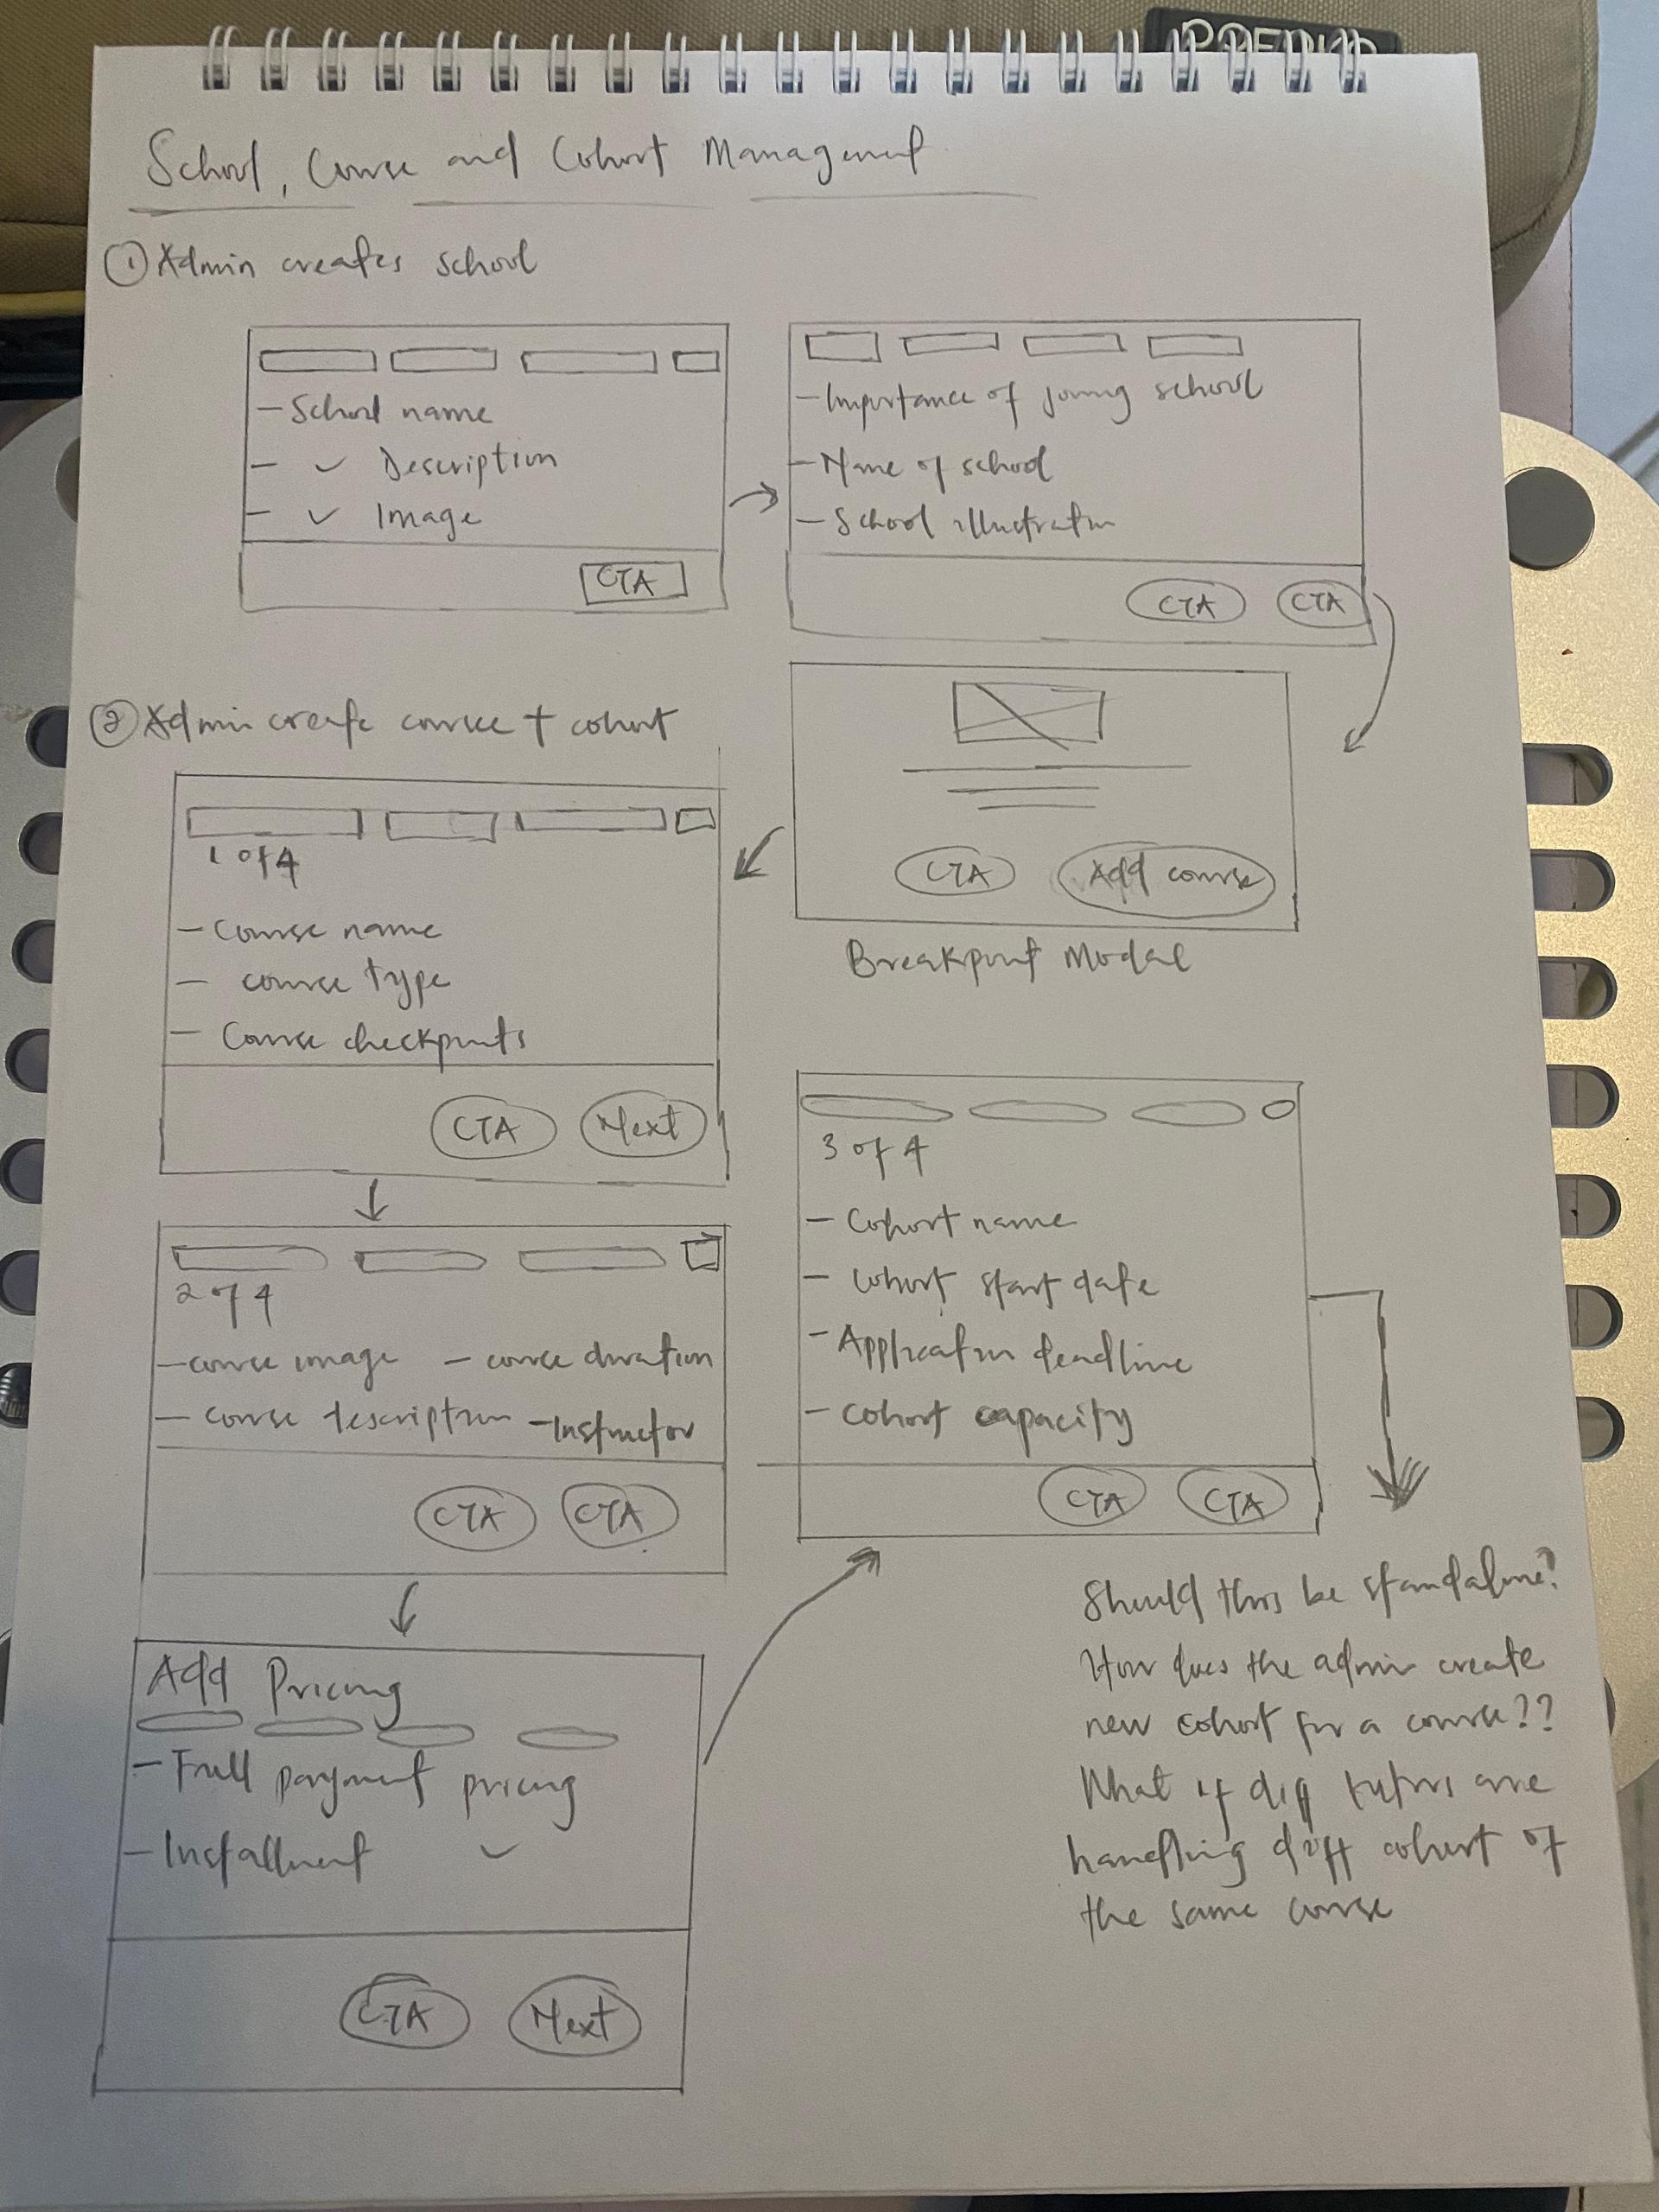 School, Course and Cohort Management
① Admin creates school
- School name
- ✓ Description
- ✓ Image
CTA
- Importance of joining school
- Name of school
- School illustration
CTA CTA
CTA Add course
Breakpoint Modal
② Admin create course + cohort
1 of 4
- Course name
- course type
- Course checkpoints
CTA Next
2 of 4
- course image - course duration
- course description - Instructor
CTA CTA
Add Pricing
- Full payment pricing
- Installment ✓
CTA Next
3 of 4
- Cohort name
- cohort start date
- Application deadline
- cohort capacity
CTA CTA
Should this be standalone?
How does the admin create
new cohort for a course??
What if diff tutors are
handling diff cohort of
the same course